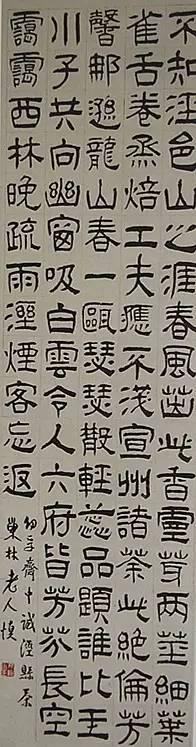 不知涇邑山之涯春風茁此香靈芽兩莖細葉
雀舌卷烝焙工夫應不淺宣州諸茶此絕倫芳
馨那遜龍山春一甌瑟瑟散輕蕊品題誰比玉
川子共向幽窗吸白雲令人六府皆芳芬長空
靄靄西林晚疏雨濕煙客忘返
幼孚齋中試涇縣茶
巢林老人慎